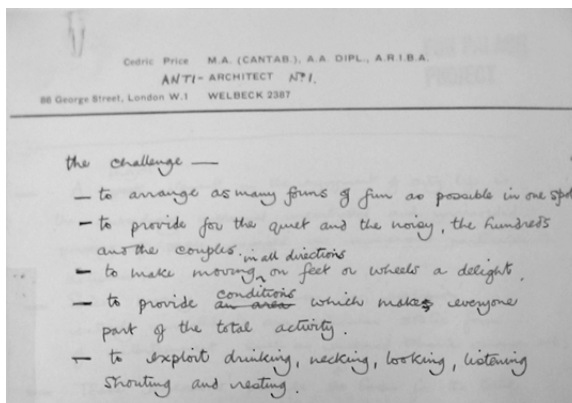 Cedric Price M.A. (CANTAB.), A.A. DIPL., A.R.I.B.A.
ANTI- ARCHITECT Nº1.
86 George Street, London W.1 WELBECK 2387
FUN PALACE
PROJECT
the challenge —
— to arrange as many forms of fun as possible in one spot
— to provide for the quiet and the noisy, the hundreds
and the couples.
in all directions
— to make moving ^ on feet or wheels a delight.
conditions
— to provide an area which makes everyone
part of the total activity.
— to exploit drinking, necking, looking, listening
shouting and resting.